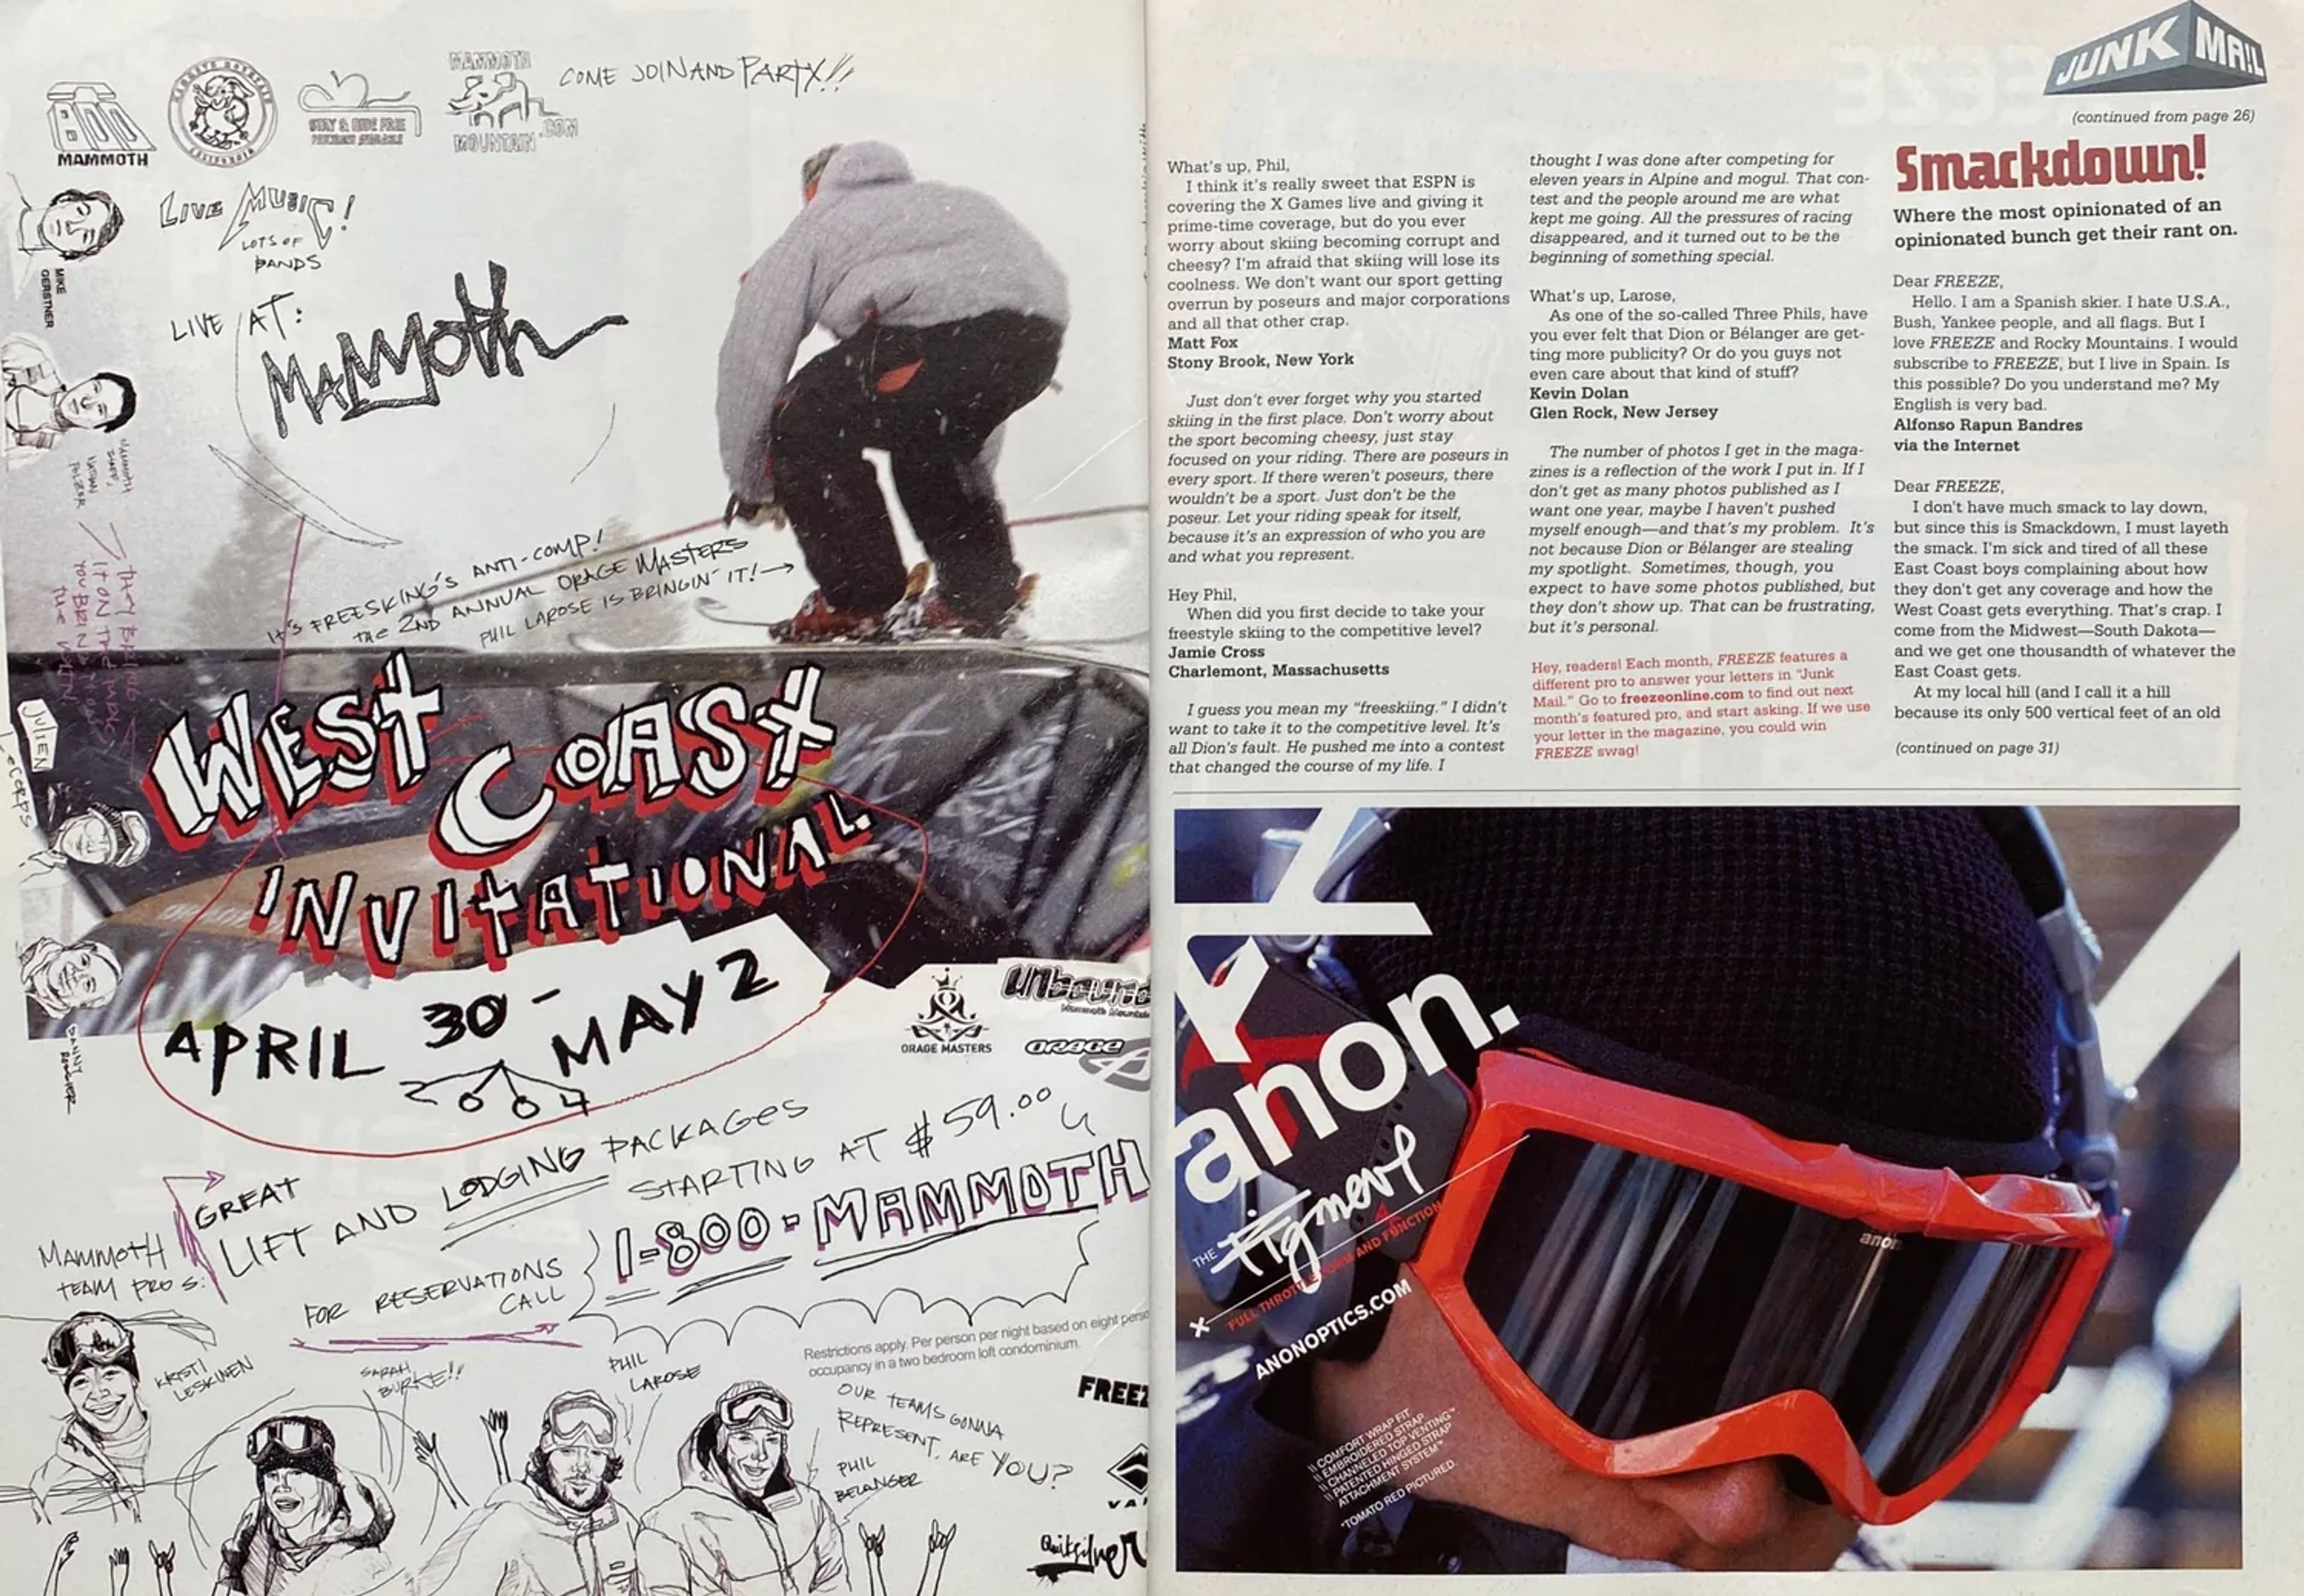 800
MAMMOTH
CALIFORNIA
STAY & RIDE FREE
MAMMOTH
MOUNTAIN.COM
COME JOIN AND PARTY!!
LIVE MUSIC!
LOTS OF
BANDS
LIVE AT:
MAMMOTH
MIKE
GERSTNER
MAMMOTH
NATHAN
JULIEN
DANNY
IT'S FREESKIING'S ANTI-COMP!
THE 2ND ANNUAL ORAGE MASTERS
PHIL LAROSE IS BRINGIN' IT!
WEST
COAST
INVITATIONAL
APRIL 30 -
MAY 2
2004
ORAGE MASTERS
unbound
Mammoth Mountain
ORAGE
GREAT
LIFT AND LODGING PACKAGES
STARTING AT $59.00
FOR RESERVATIONS
CALL
1-800-MAMMOTH
Restrictions apply. Per person per night based on eight perso
occupancy in a two bedroom loft condominium.
MAMMOTH
TEAM PROS:
KRISTI
LESKINEN
SARAH
BURKE!!
PHIL
LAROSE
OUR TEAMS GONNA
REPRESENT, ARE YOU?
PHIL
BELANGER
FREEZ
VA
Quiksilver
JUNK MAIL
(continued from page 26)
What's up, Phil,
I think it's really sweet that ESPN is
covering the X Games live and giving it
prime-time coverage, but do you ever
worry about skiing becoming corrupt and
cheesy? I'm afraid that skiing will lose its
coolness. We don't want our sport getting
overrun by poseurs and major corporations
and all that other crap.
Matt Fox
Stony Brook, New York
Just don't ever forget why you started
skiing in the first place. Don't worry about
the sport becoming cheesy, just stay
focused on your riding. There are poseurs in
every sport. If there weren't poseurs, there
wouldn't be a sport. Just don't be the
poseur. Let your riding speak for itself,
because it's an expression of who you are
and what you represent.
Hey Phil,
When did you first decide to take your
freestyle skiing to the competitive level?
Jamie Cross
Charlemont, Massachusetts
I guess you mean my "freeskiing." I didn't
want to take it to the competitive level. It's
all Dion's fault. He pushed me into a contest
that changed the course of my life. I
thought I was done after competing for
eleven years in Alpine and mogul. That con-
test and the people around me are what
kept me going. All the pressures of racing
disappeared, and it turned out to be the
beginning of something special.
What's up, Larose,
As one of the so-called Three Phils, have
you ever felt that Dion or Bélanger are get-
ting more publicity? Or do you guys not
even care about that kind of stuff?
Kevin Dolan
Glen Rock, New Jersey
The number of photos I get in the maga-
zines is a reflection of the work I put in. If I
don't get as many photos published as I
want one year, maybe I haven't pushed
myself enough—and that's my problem. It's
not because Dion or Bélanger are stealing
my spotlight. Sometimes, though, you
expect to have some photos published, but
they don't show up. That can be frustrating,
but it's personal.
Hey, readers! Each month, FREEZE features a
different pro to answer your letters in "Junk
Mail." Go to freezeonline.com to find out next
month's featured pro, and start asking. If we use
your letter in the magazine, you could win
FREEZE swag!
Smackdown!
Where the most opinionated of an
opinionated bunch get their rant on.
Dear FREEZE,
Hello. I am a Spanish skier. I hate U.S.A.,
Bush, Yankee people, and all flags. But I
love FREEZE and Rocky Mountains. I would
subscribe to FREEZE, but I live in Spain. Is
this possible? Do you understand me? My
English is very bad.
Alfonso Rapun Bandres
via the Internet
Dear FREEZE,
I don't have much smack to lay down,
but since this is Smackdown, I must layeth
the smack. I'm sick and tired of all these
East Coast boys complaining about how
they don't get any coverage and how the
West Coast gets everything. That's crap. I
come from the Midwest—South Dakota—
and we get one thousandth of whatever the
East Coast gets.
At my local hill (and I call it a hill
because its only 500 vertical feet of an old
(continued on page 31)
anon.
THE Figment
FULL THROTTLE FORM AND FUNCTION
ANONOPTICS.COM
\\ COMFORT WRAP FIT
\\ EMBROIDERED STRAP
\\ CHANNELED TOP VENTING™
\\ PATENTED HINGED STRAP
ATTACHMENT SYSTEM™
*TOMATO RED PICTURED.
anon